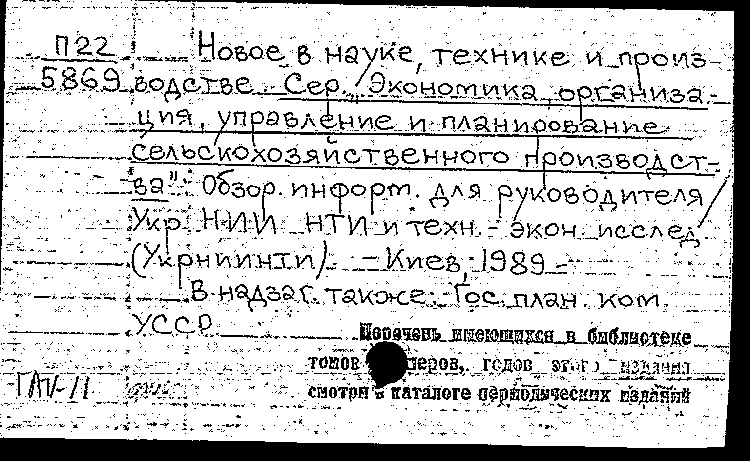 П22 Новое в науке, технике и произ-
5869 водстве. Сер. „Экономика, организа-
ция, управление и планирование
сельскохозяйственного производст-
ва": Обзор. информ. для руководителя
Укр НИИ НТИ и техн.-экон. исслед.
(УкрНИИНТИ). - Киев, 1989 -
В надзаг. также: Гос. план. ком.
УССР
Перечень имеющихся в библиотеке
томов номеров, годов этого издания
смотри в каталоге периодических изданий